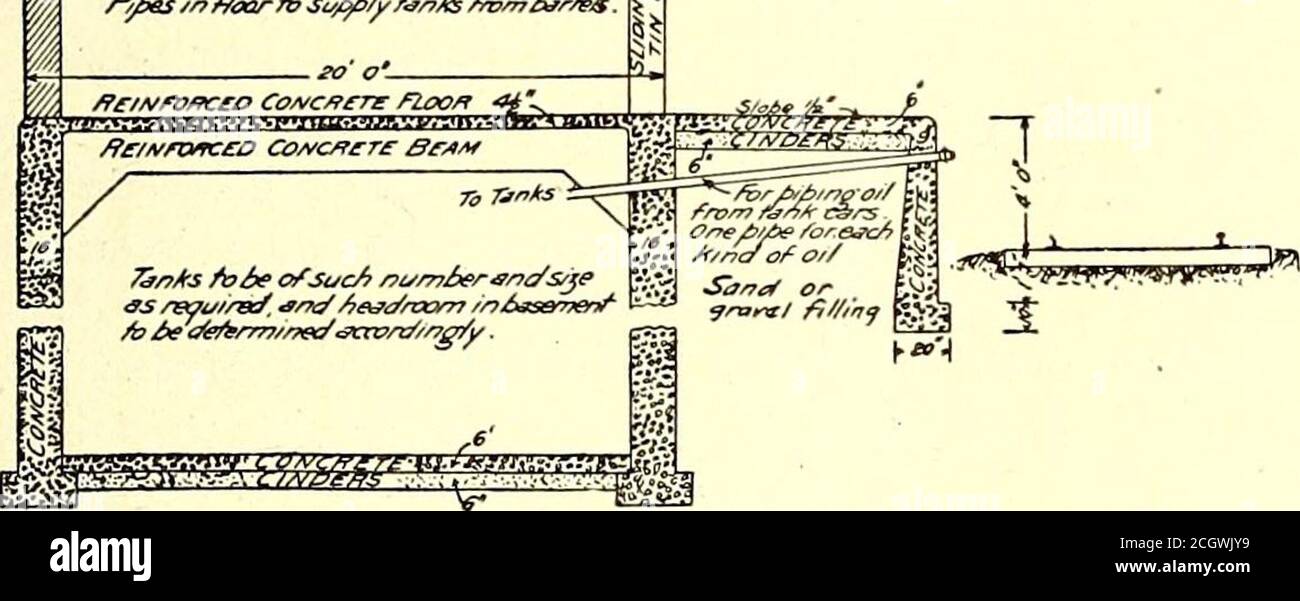 Pipes in floor to supply tanks from barrels.
SLIDING
TIN
20' 0"
REINFORCED CONCRETE FLOOR 4½"
Slope ½" 6"
CONCRETE
CINDERS 9
REINFORCED CONCRETE BEAM
6"
To Tanks
For piping oil
from tank cars.
One pipe for each
kind of oil
4' 0"
16
CONCRETE
Tanks to be of such number and size
as required, and headroom in basement
to be determined accordingly.
Sand or
gravel filling
20"
CONCRETE
6'
CONCRETE
CINDERS
6"
alamy
Image ID: 2CGWJY9
www.alamy.com